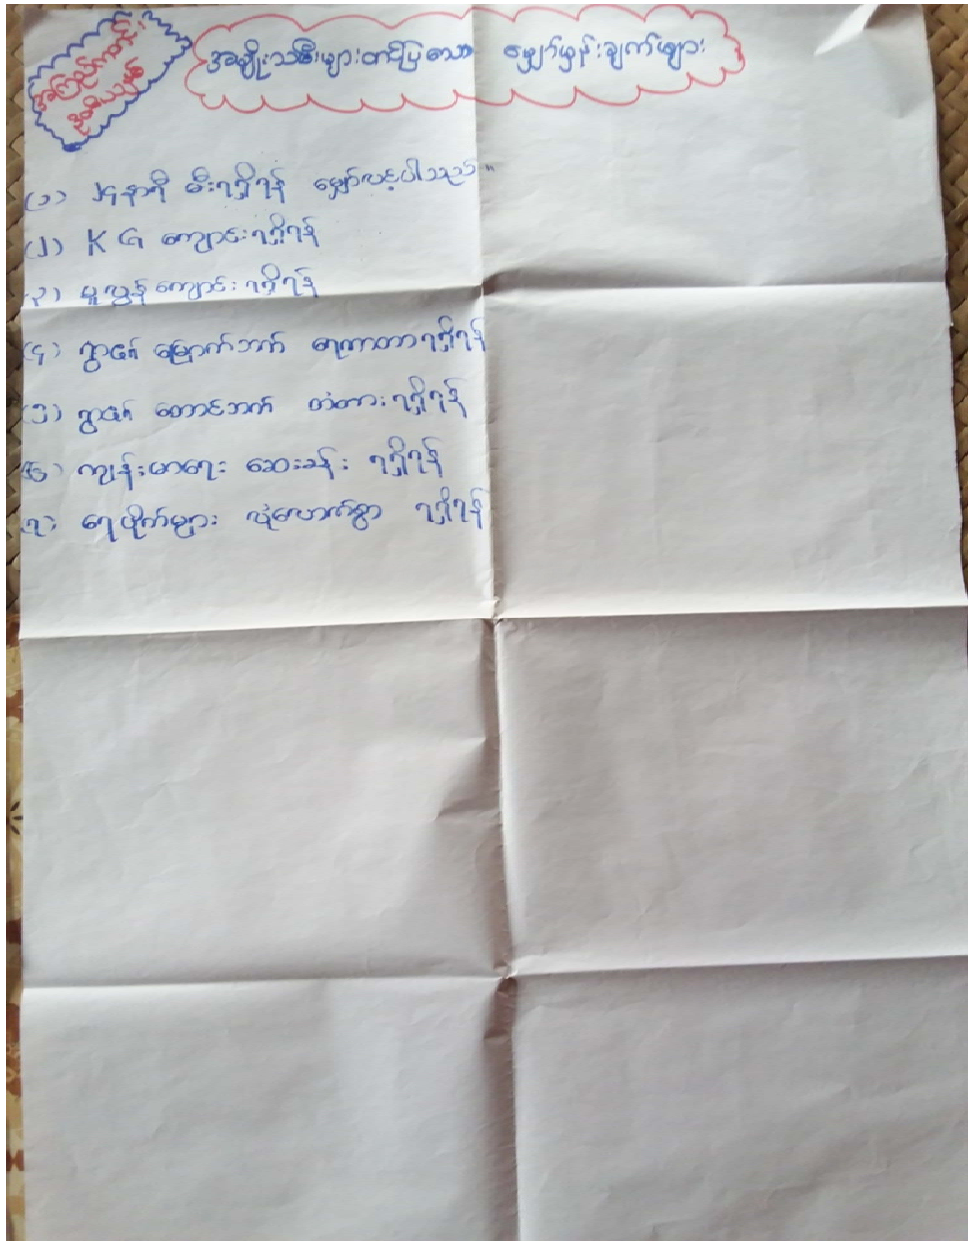 အမျိုးသမီးများတင်ပြသော မျှော်မှန်းချက်များ
(၁) ၂၄နာရီ မီးရရှိရန် မျှော်လင့်ပါသည်။
(၂) KG ကျောင်းရရှိရန်
(၃) မူလွန်ကျောင်းရရှိရန်
(၄) ရွာ၏ မြောက်ဘက် ရေကာတာရရှိရန်
(၅) ရွာ၏ တောင်ဘက် တံတားရရှိရန်
(၆) ကျန်းမာရေး ဆေးခန်း ရရှိရန်
(၇) ရေပိုက်များ လုံလောက်စွာ ရရှိရန်